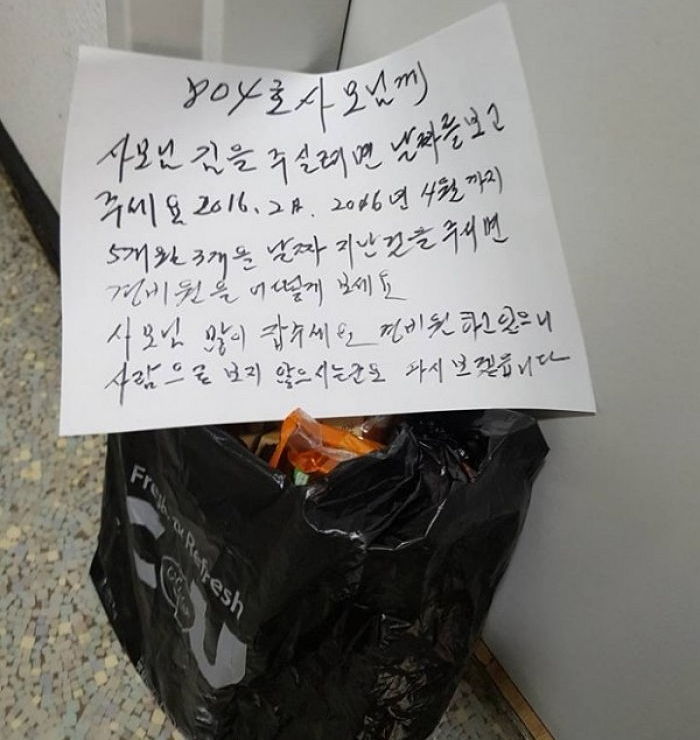 804호 사모님께
사모님 김을 주실려면 날짜를 보고
주세요 2016. 2月. 2016년 4월까지
5개월 3개을 날짜 지난것을 주시면
경비원을 어떻게 보세요
사모님 많이 잡수세요 경비원 하고 있으니
사람으로 보지 않으시는군요 다시 보겠습니다
Fresh Refresh
CU